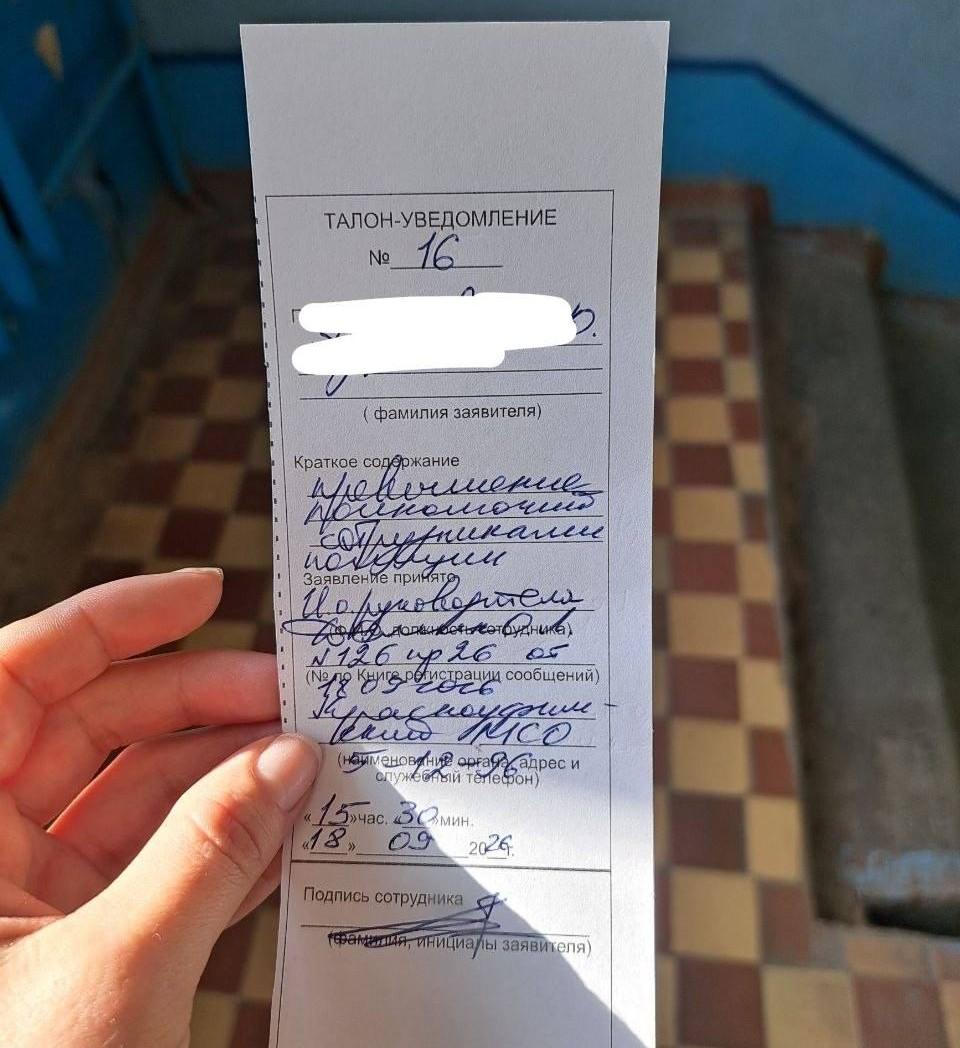 ТАЛОН-УВЕДОМЛЕНИЕ
№ 16
( фамилия заявителя)
Краткое содержание
превышение
полномочий
сотрудниками
полиции
Заявление принято
И.о. руководителя
должность сотрудника)
№ 126 пр 26 от
(№ по Книге регистрации сообщений)
Красноуфим-
ский МСО
(наименование органа, адрес и
5-12-96
служебный телефон)
«15»час. 30 мин.
«18» 09 2026г.
Подпись сотрудника
(фамилия, инициалы заявителя)